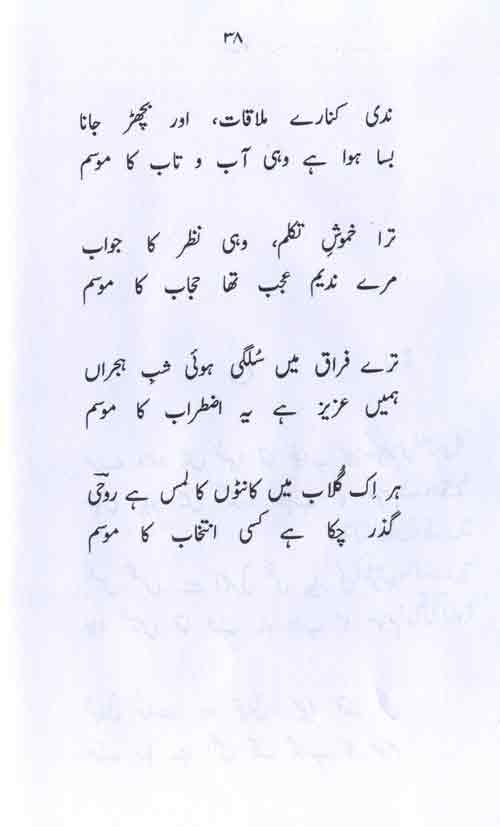 ۳۸
ندی کنارے ملاقات، اور بچھڑ جانا
بسا ہوا ہے وہی آب و تاب کا موسم
ترا خموشِ تکلم، وہی نظر کا جواب
مرے ندیم عجب تھا حجاب کا موسم
ترے فراق میں سُلگی ہوئی شبِ ہجراں
ہمیں عزیز ہے یہ اضطراب کا موسم
ہر اِک گُلاب میں کانٹوں کا لمس ہے روحؔی
گذر چکا ہے کسی انتخاب کا موسم